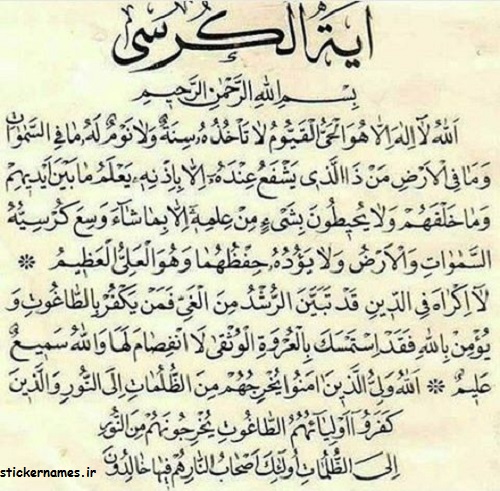 آية الكرسى
بِسْمِ اللهِ الرَّحْمٰنِ الرَّحِيمِ
اَللهُ لَآ اِلٰهَ اِلَّا هُوَ الْحَيُّ الْقَيُّومُ لَا تَأْخُذُهُ سِنَةٌ وَلَا نَوْمٌ لَهُ مَا فِي السَّمٰوَاتِ
وَمَا فِي الْاَرْضِ مَنْ ذَا الَّذِي يَشْفَعُ عِنْدَهُ اِلَّا بِاِذْنِهِ يَعْلَمُ مَا بَيْنَ اَيْدِيهِمْ
وَمَا خَلْفَهُمْ وَلَا يُحِيطُونَ بِشَيْءٍ مِنْ عِلْمِهِ اِلَّا بِمَا شَاءَ وَسِعَ كُرْسِيُّهُ
السَّمٰوَاتِ وَالْاَرْضَ وَلَا يَؤُدُهُ حِفْظُهُمَا وَهُوَ الْعَلِيُّ الْعَظِيمُ *
لَآ اِكْرَاهَ فِي الدِّينِ قَدْ تَبَيَّنَ الرُّشْدُ مِنَ الْغَيِّ فَمَنْ يَكْفُرْ بِالطَّاغُوتِ وَ
يُؤْمِنْ بِاللهِ فَقَدِ اسْتَمْسَكَ بِالْعُرْوَةِ الْوُثْقٰى لَا انْفِصَامَ لَهَا وَاللهُ سَمِيعٌ
عَلِيمٌ * اَللهُ وَلِيُّ الَّذِينَ اٰمَنُوا يُخْرِجُهُمْ مِنَ الظُّلُمَاتِ اِلَى النُّورِ وَالَّذِينَ
كَفَرُوآ اَوْلِيَآئُهُمُ الطَّاغُوتُ يُخْرِجُونَهُمْ مِنَ النُّورِ
اِلَى الظُّلُمَاتِ اُولٰئِكَ اَصْحَابُ النَّارِ هُمْ فِيهَا خَالِدُونَ
stickernames.ir